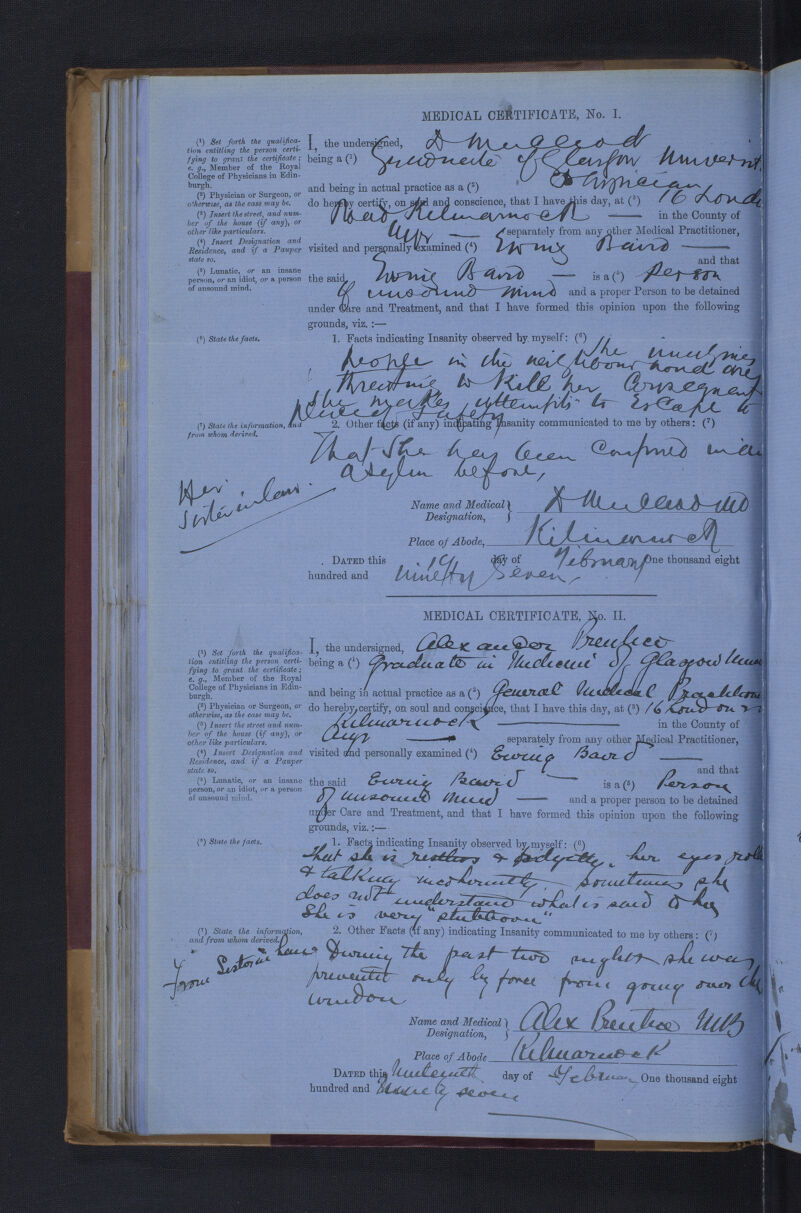 MEDICAL CERTIFICATE, No. I.
(¹) Set forth the qualifica-
tion entitling the person certi-
fying to grant the certificate;
e. g., Member of the Royal
College of Physicians in Edin-
burgh.
(²) Physician or Surgeon, or
otherwise, as the case may be.
(³) Insert the street, and num-
ber of the house (if any), or
other like particulars.
(⁴) Insert Designation and
Residence, and if a Pauper
state so.
(⁵) Lunatic, or an insane
person, or an idiot, or a person
of unsound mind.
I, the undersigned, D McLeod
being a (¹) Graduate of Glasgow Universit
and being in actual practice as a (²) Physician
do hereby certify, on soul and conscience, that I have this day, at (³) 16 Londo
Road Kilmarnock — in the County of
Ayr — separately from any other Medical Practitioner,
visited and personally examined (⁴) Ewing Baird —
and that
the said Ewing Baird — is a (⁵) Person
of unsound mind and a proper Person to be detained
under Care and Treatment, and that I have formed this opinion upon the following
grounds, viz. :—
(⁶) State the facts.
1. Facts indicating Insanity observed by myself: (⁶) She imagines
people in the neighbourhood are
threatning to kill her Consequent
She makes attempts to escape to
place of safety
(⁷) State the information, and
from whom derived.
2. Other facts (if any) indicating Insanity communicated to me by others: (⁷)
That She has been confined in an
asylum before,
Her
Sister in law.
Name and Medical Designation, D McLeod MD
Place of Abode, Kilmarnock
DATED this 19 day of February One thousand eight
hundred and Ninety Seven,
MEDICAL CERTIFICATE, No. II.
(¹) Set forth the qualifica-
tion entitling the person certi-
fying to grant the certificate;
e. g., Member of the Royal
College of Physicians in Edin-
burgh.
(²) Physician or Surgeon, or
otherwise, as the case may be.
(³) Insert the street and num-
ber of the house (if any), or
other like particulars.
(⁴) Insert Designation and
Residence, and if a Pauper
state so.
(⁵) Lunatic, or an insane
person, or an idiot, or a person
of unsound mind.
I, the undersigned, Alexander Prentice
being a (¹) Graduate in Medicine of Glasgow Univ
and being in actual practice as a (²) General Medical Practition
do hereby certify, on soul and conscience, that I have this day, at (³) 16 London
Kilmarnock — in the County of
Ayr — separately from any other Medical Practitioner,
visited and personally examined (⁴) Ewing Baird —
and that
the said Ewing Baird — is a (⁵) Person
of unsound mind — and a proper person to be detained
under Care and Treatment, and that I have formed this opinion upon the following
grounds, viz. :—
(⁶) State the facts.
1. Facts indicating Insanity observed by myself: (⁶)
That she is restless & fidgetty, her eyes roll
& talking incoherently. Sometimes she
does not understand what is said to her
She is very "stubborn"
(⁷) State the information,
and from whom derived.
2. Other Facts (if any) indicating Insanity communicated to me by others: (⁷)
From Sister in Law
During the past two nights she was
prevented only by force from going over the
window
Name and Medical Designation, Alex Prentice MB
Place of Abode Kilmarnock
DATED this Nineteenth day of February One thousand eight
hundred and Ninety seven